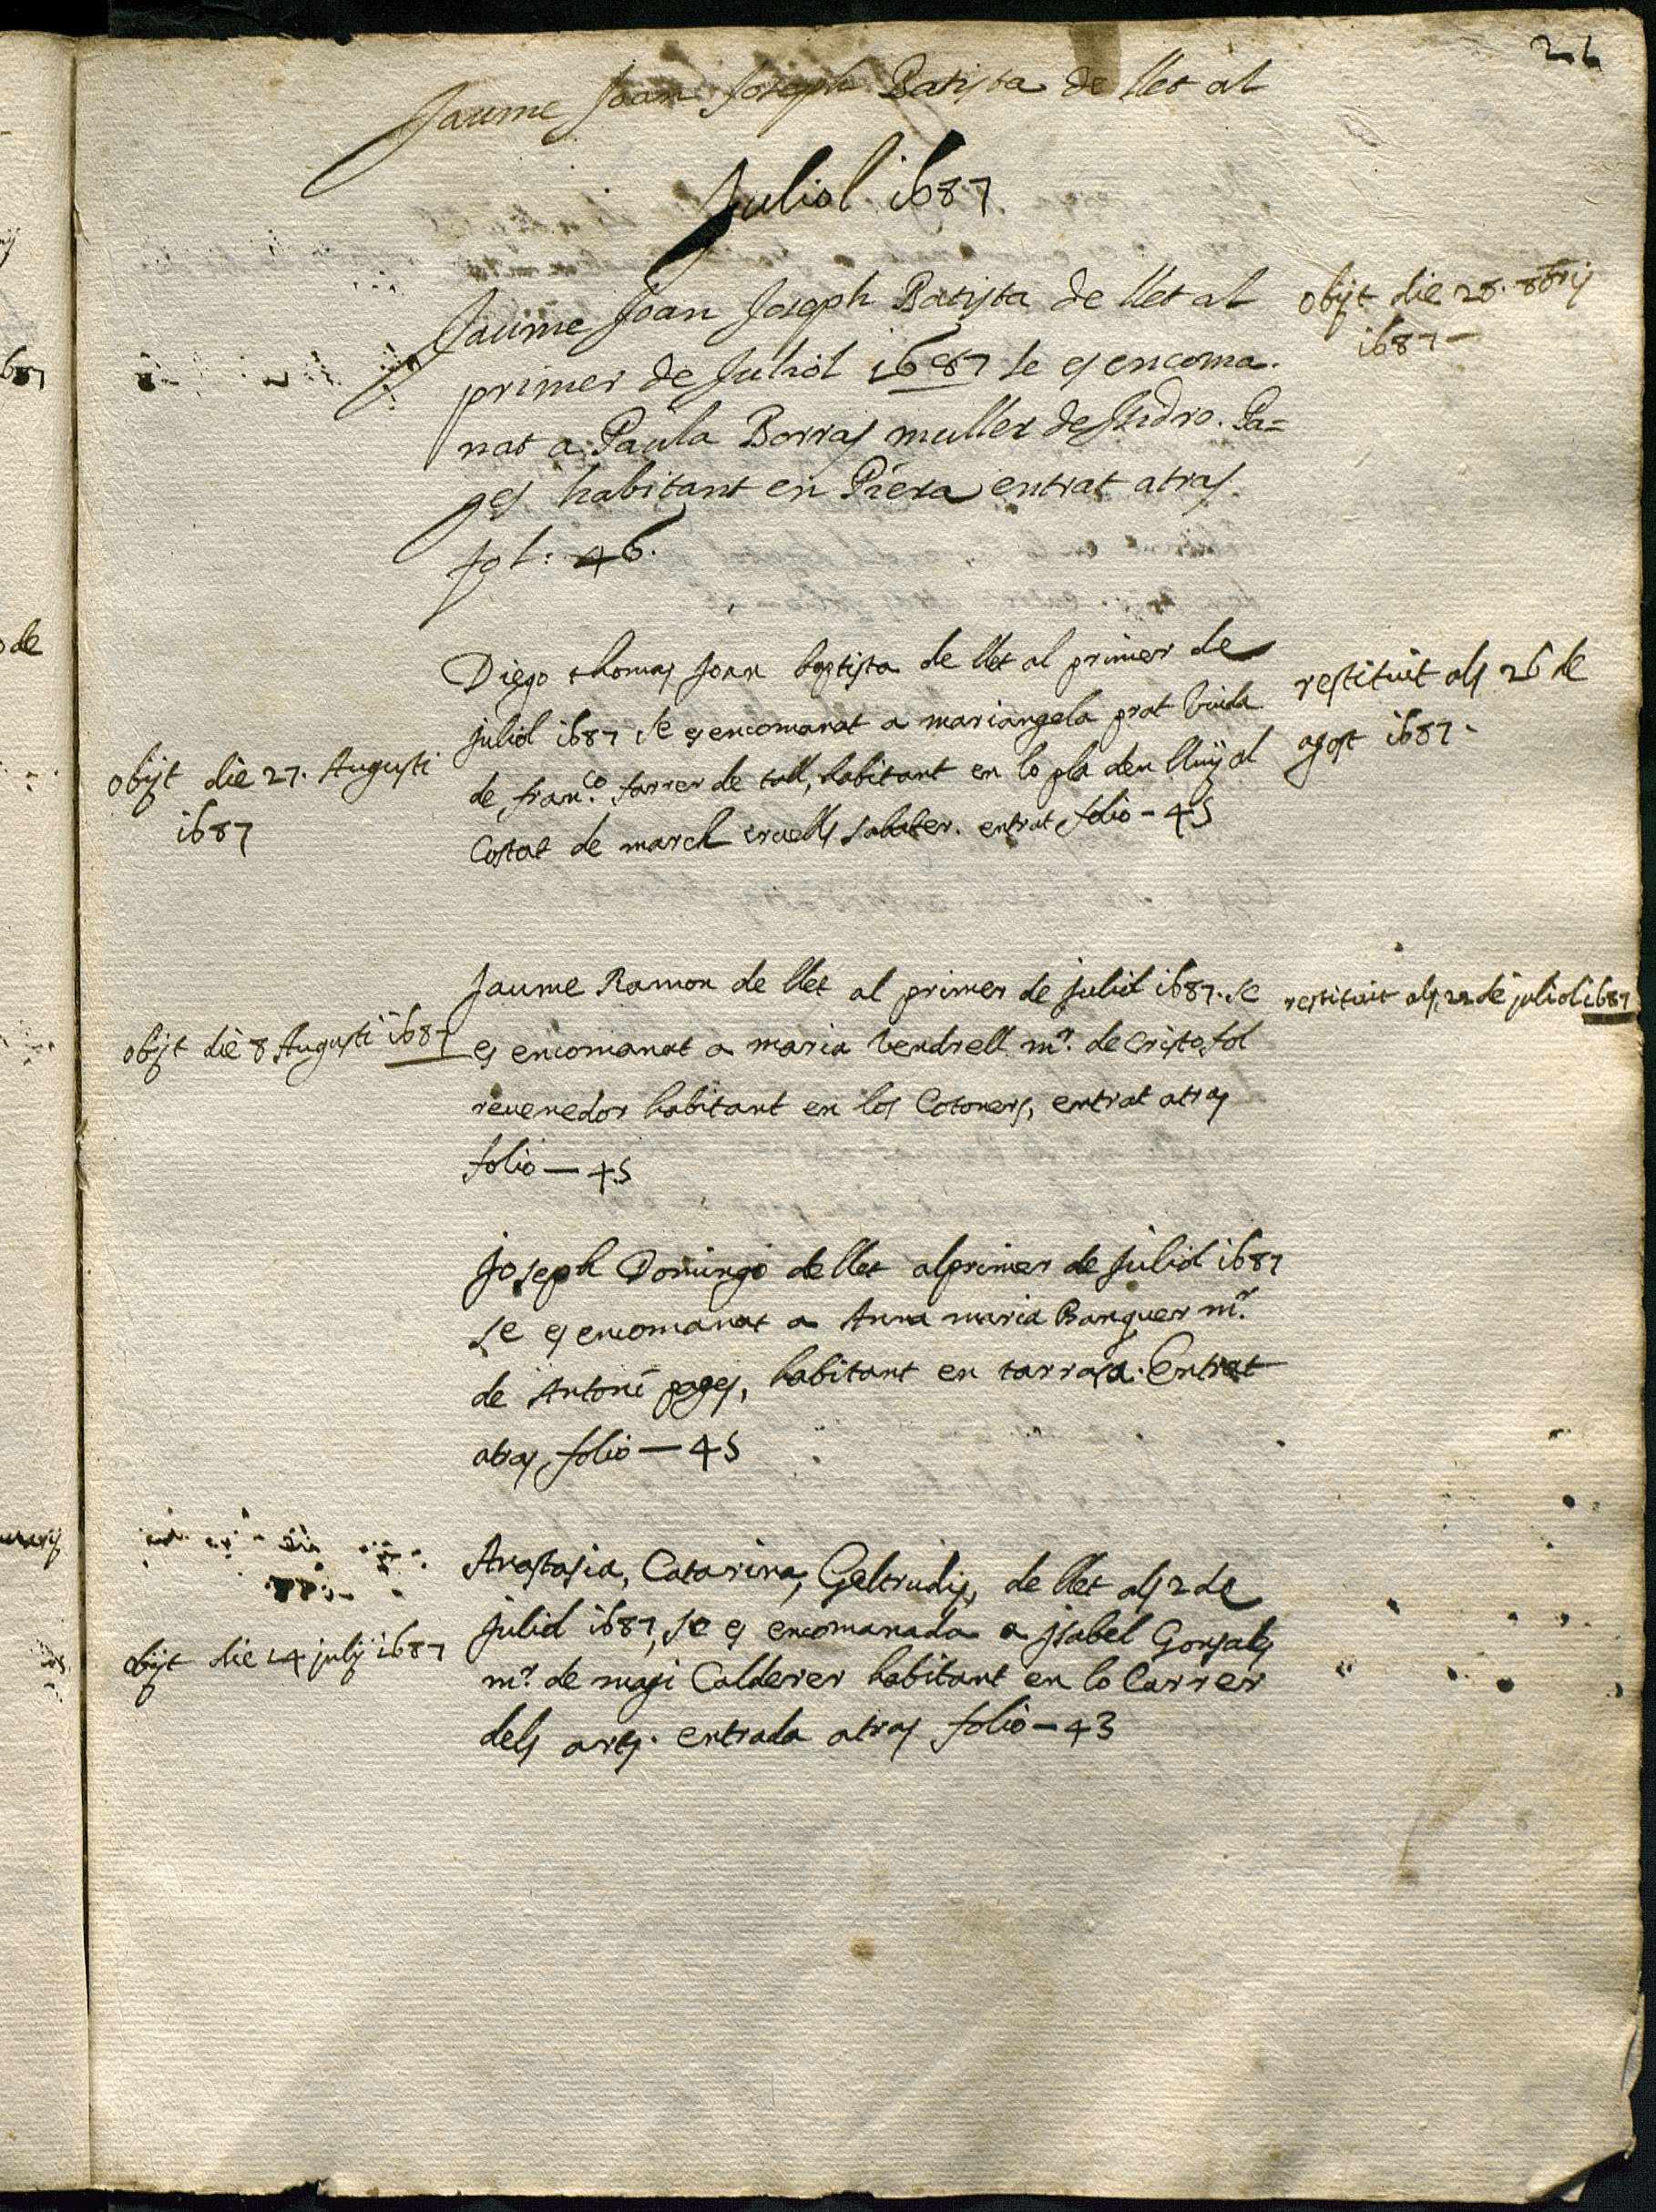 26
Jaume Joan Joseph Batista de llet al
Juliol 1687
Jaume Joan Joseph Batista de llet al
primer de Juliol 1687 se es encoma-
nat a Paula Borras muller de Isidro. Pa=
ges habitant en Piera entrat atras
fol: 46.
obijt die 28. 8bris
1687-
Diego thomas Joan baptista de llet al primer de
juliol 1687 se es encomanat a mariangela prat viuda
de fran.co farrer de tall, habitant en lo pla den lluy al
Costat de march cruells sabater. entrat folio - 45
restituit als 26 de
agost 1687-
obijt die 27. Augusti
1687
Jaume Ramon de llet al primer de juliol 1687. se
es encomanat a maria Vendrell mr. de Cristofol
revenedor habitant en los Cotoners, entrat atras
folio — 45
restituit als 22 de juliol 1687
obijt die 8 Augusti 1687
Joseph Domingo de llet al primer de Juliol 1687
se es encomanat a Anna maria Banquer mr.
de Antoni pages, habitant en tarrasa. Entrat
atras folio — 45
Anastasia, Catarina, Geltrudis, de llet als 2 de
juliol 1687, se es encomanada a jsabel Gonsales
mr. de magi Calderer habitant en lo Carrer
dels arcs. entrada atras folio - 43
obijt die 14 julij 1687